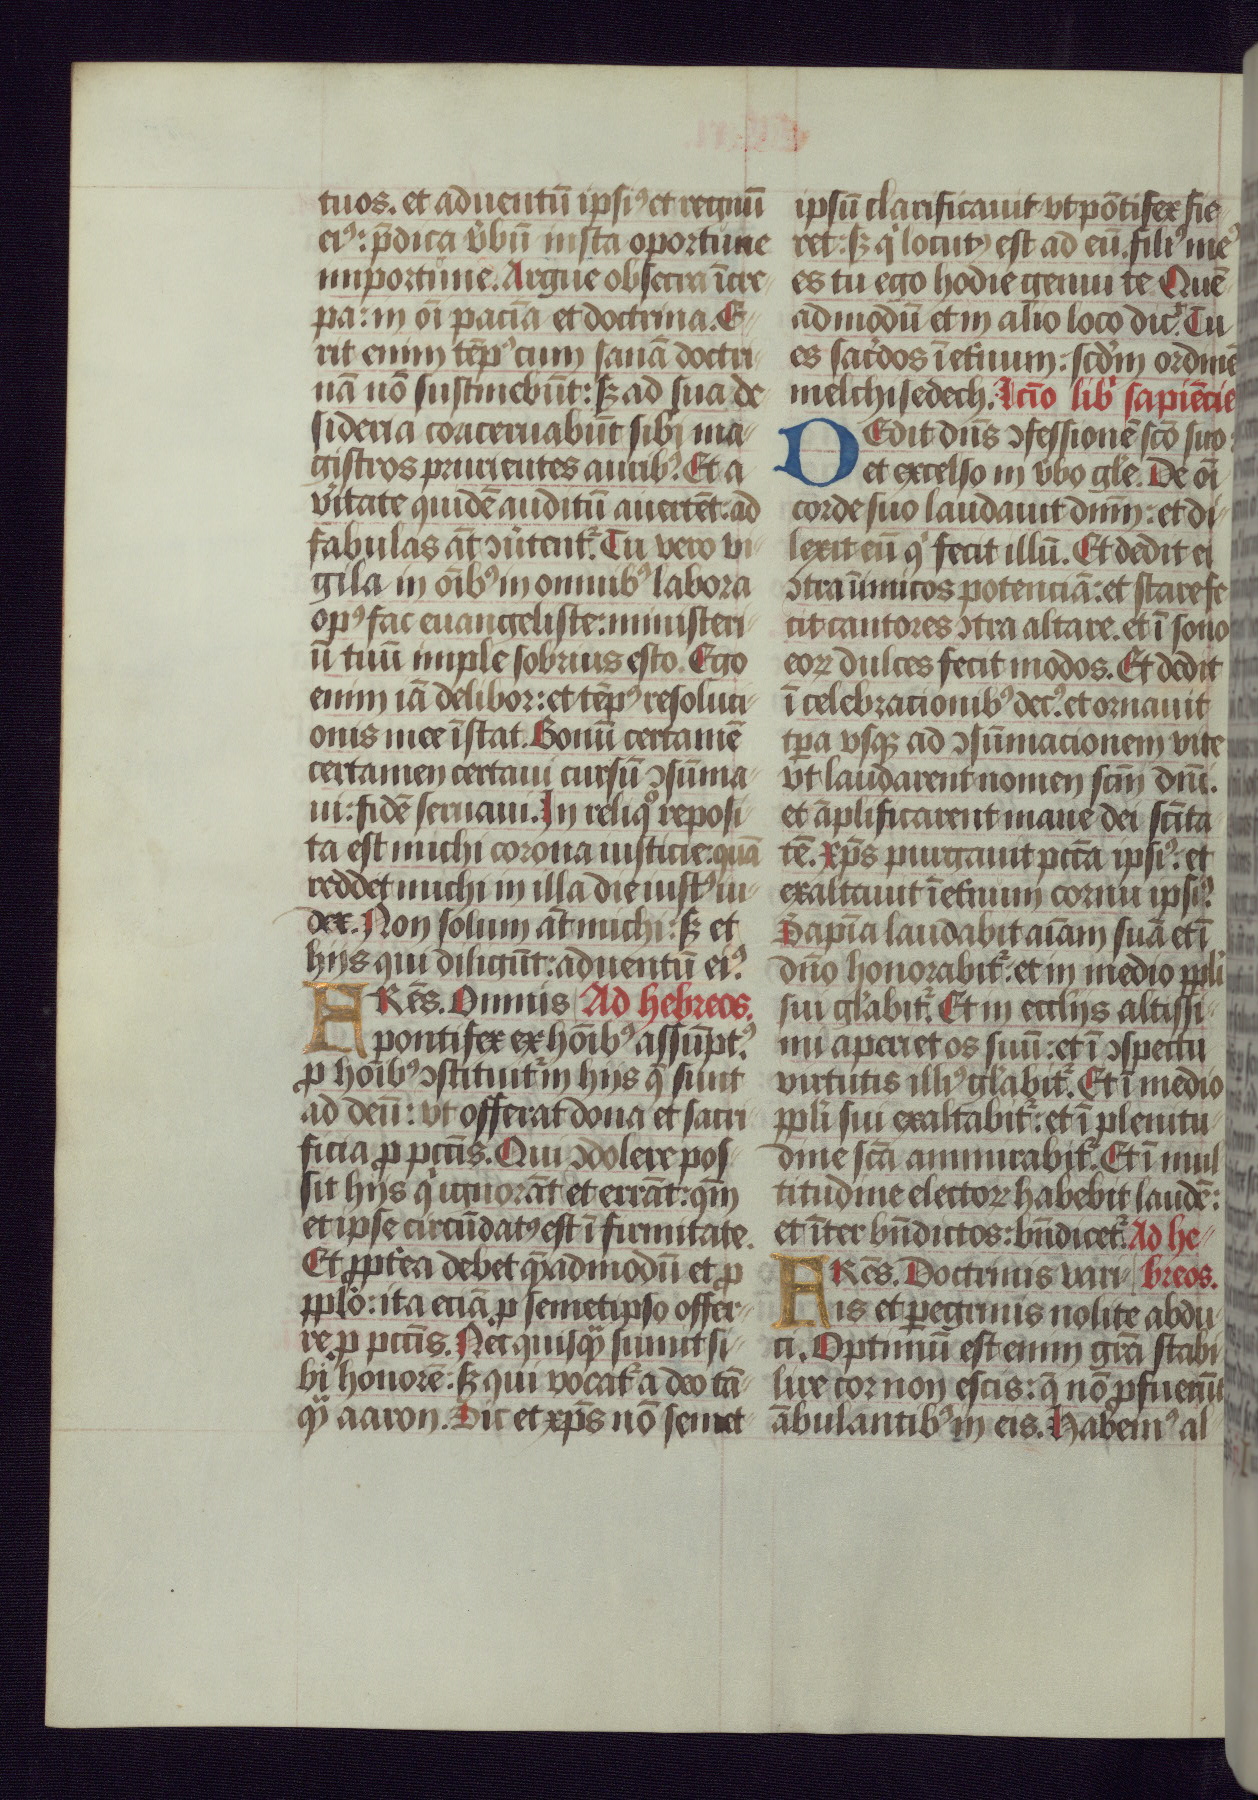 tuos. et aduentū ipsiꝰ et regnū
eiꝰ: p̄dica v̓bū insta oportune
inportune. Argue obsecra īcre-
pa: in oī pacīa et doctrina. E-
rit enim tēpꝰ cum sanā doctri-
nā nō sustinebūt: sꝫ ad sua de
sideria coaceruabūt sibi ma-
gistros prurientes auribꝰ. Et a
v̓itate quidē auditū auertēt. ad
fabulas āt ꝯu̓tent᷑. Tu vero vi-
gila in oībꝰ in omnibꝰ labora
opꝰ fac euangeliste: ministeri-
ū tuū imple sobrius esto. Ego
enim iā delibor: et tēpꝰ resoluci-
onis mee īstat. Bonū certamē
certamen certaui cursū ꝯsūma-
ui: fidē seruaui. In reliqͦ reposi-
ta est michi corona iusticie: quā
reddet michi in illa die iustꝰ iu-
dex. Non solum āt michi: sꝫ et
hijs qui diligūt: aduentū eiꝰ.
FRēs. Omnis Ad hebreos.
pontifex ex hoībꝰ assūptꝰ.
ꝓ hoībꝰ ꝯstituit᷑ in hijs q̄ sunt
ad deū: vt offerat dona et sacri
ficia ꝓ pctīs. Qui ꝯdolere pos-
sit hijs qͥ ignorāt et errāt: qm̄
et ipse circūdatꝰ est ī firmitate.
Et ꝓpt̓ea debet q̄admodū et ꝓ
pplō: ita eciā ꝓ semetipso offer-
re ꝓ pctīs. Nec quisqꝫ sumit si-
bi honorē: sꝫ qui vocat᷑ a deo tā-
qꝫ aaron. Sic et xp̄s nō semet
ipsū clarificauit vt pōtifex fie-
ret: sꝫ qͥ locutꝰ est ad eū. filiꝰ meꝰ
es tu ego hodie genui te Quē
admodū et in alio loco dic᷑. Tu
es sac̓dos ī et̓num: scd̓m ordinē
melchisedech. Lctīo lib̓ sapiēcie
DEdit dn̄s ꝯfessionē scō suo:
et excelso in v̓bo gl̓e. De oī
corde suo laudauit dn̄m: et di-
lexit eū qͥ fecit illū. Et dedit ei
ꝯtra īimicos potenciā: et stare fe
cit cantores ꝯtra altare. et ī sono
eoꝝ dulces fecit modos. Et dedit
ī celebracionibꝰ decꝰ. et ornauit
tp̄a vsqꝫ ad ꝯsūmacionem vite
vt laudarent nomen scm̄ dn̄i.
et āplificarent mane dei scīta
tē. Xp̄s purgauit pctā ipsiꝰ: et
exaltauit ī et̓num cornu ipsiꝰ.
Sapīa laudabit aīam suā et ī
dn̄o honorabit᷑: et in medio ppl̓i
sui gl̓abit᷑. Et in eccl̓ijs altissi-
mi aperiet os suū: et ī ꝯspectu
virtutis illiꝰ gl̓abit᷑. Et ī medio
ppl̓i sui exaltabit᷑: et ī plenitu-
dine scā ammirabit᷑. Et ī mul
titudine electoꝝ habebit laudē:
et īter bn̄dictos: bn̄dicet᷑. Ad he-
FRēs. Doctrinis vari- breos.
is et ꝑegrinis nolite abdu-
ci. Optimū est enim grā stabi
lire cor non escis: q̄ nō ꝓfuerūt
ābulantibꝰ in eis. Habemꝰ al-